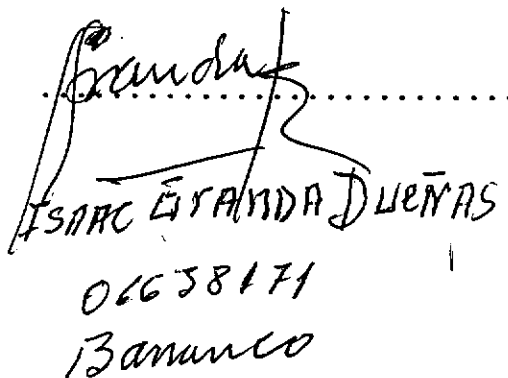 Granda
ISAAC GrANDA DUEÑAS
06638171
Barranco